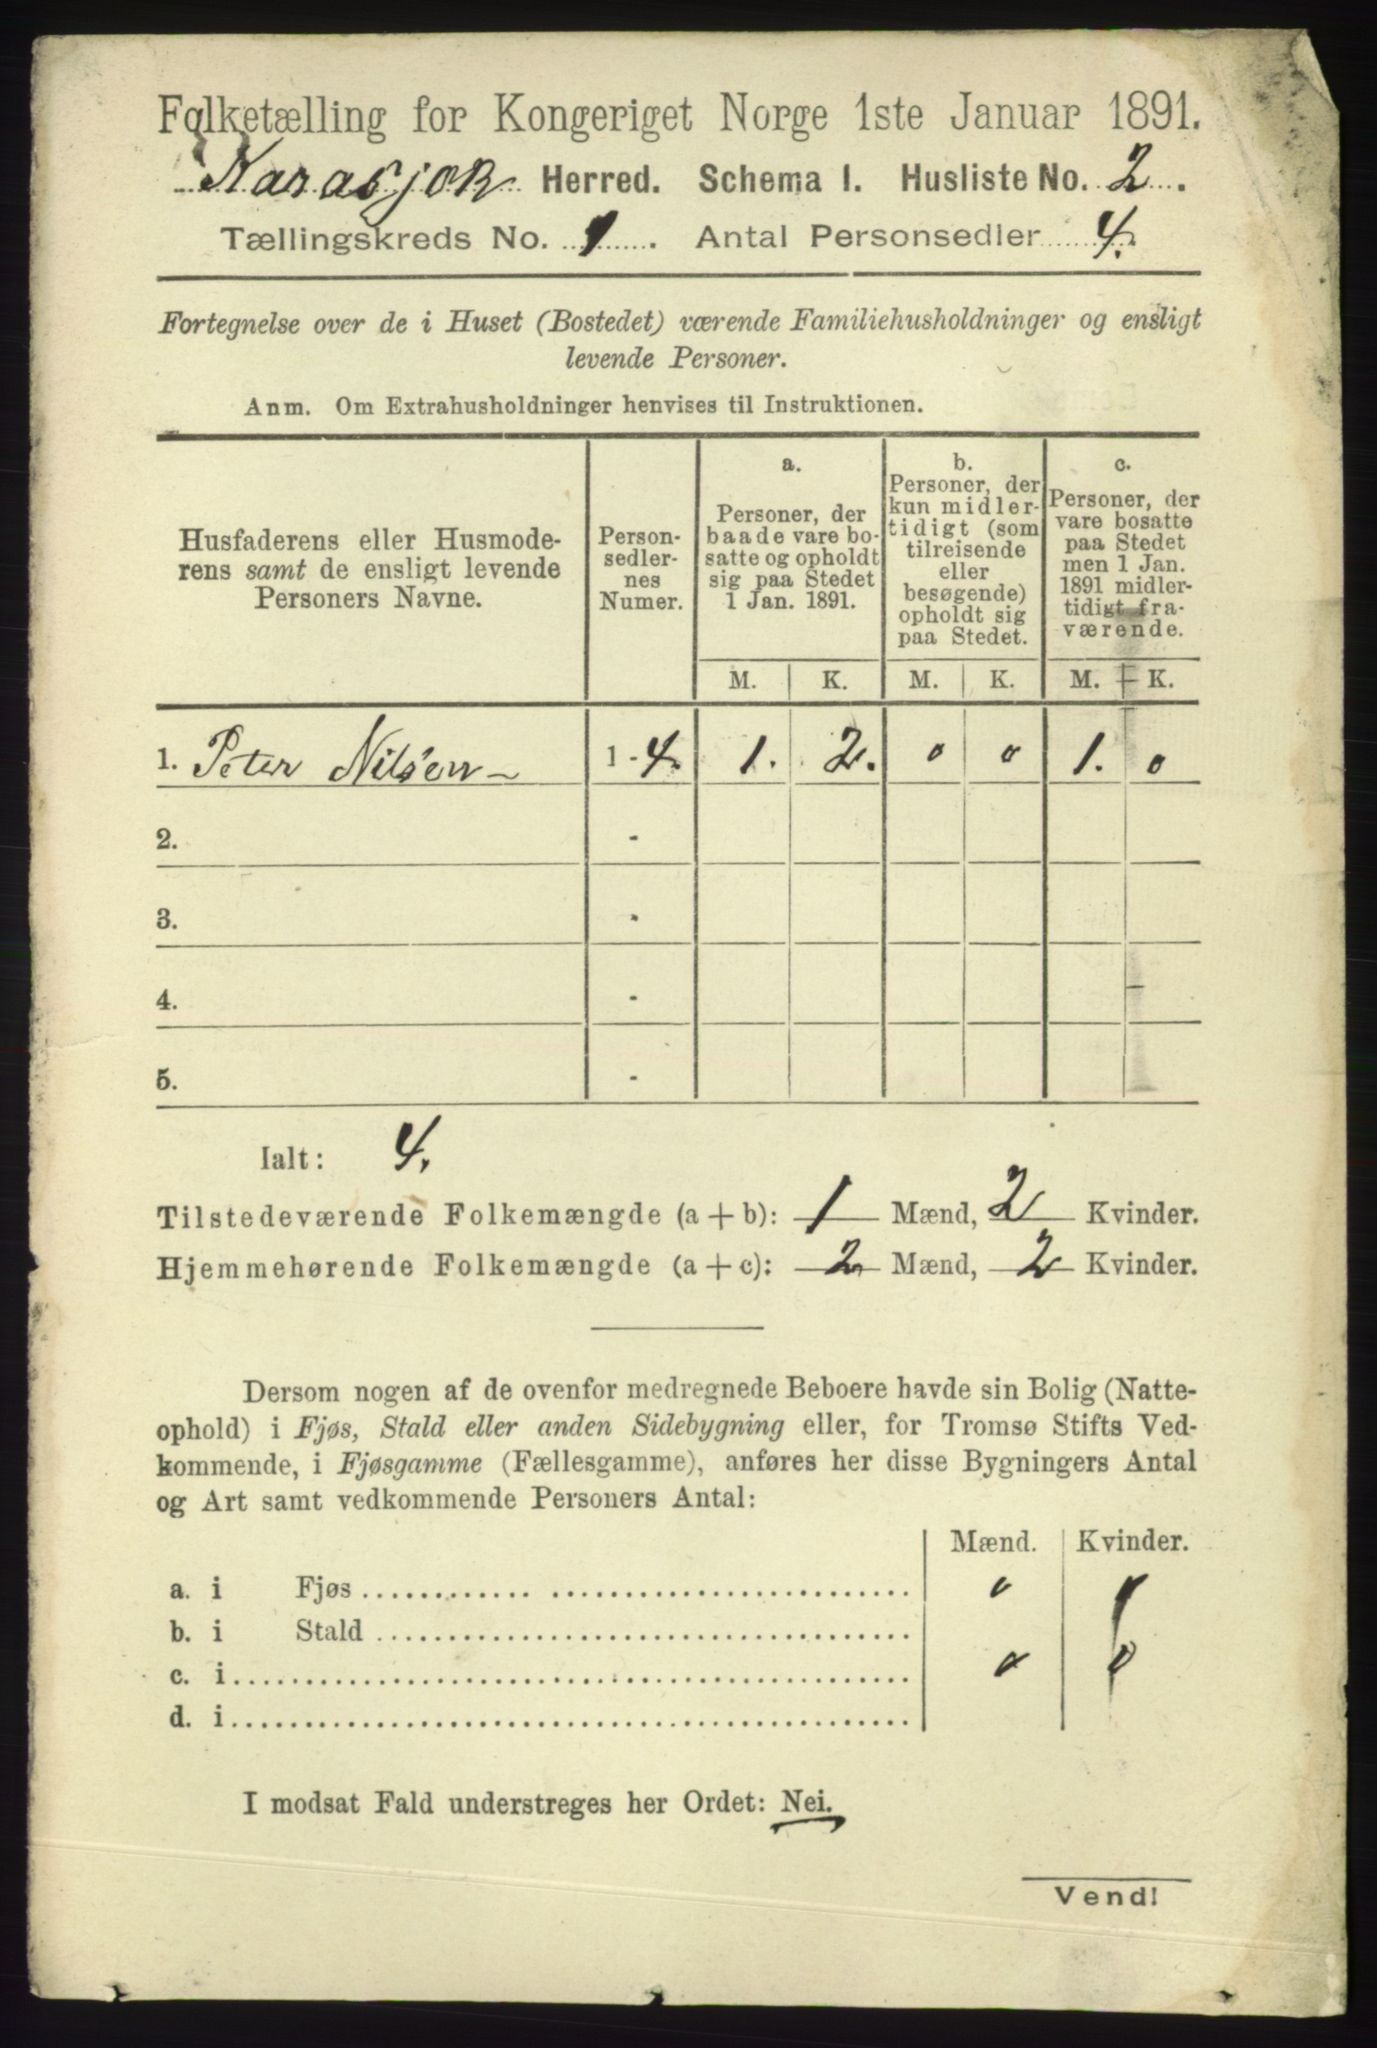 Folketælling for Kongeriget Norge 1ste Januar 1891.
Karasjok Herred. Schema I. Husliste No. 2.
Tællingskreds No. 1. Antal Personsedler 4.
Fortegnelse over de i Huset (Bostedet) værende Familiehusholdninger og ensligt
levende Personer.
Anm. Om Extrahusholdninger henvises til Instruktionen.
Husfaderens eller Husmode-
rens samt de ensligt levende
Personers Navne.
Person-
sedler-
nes
Numer.
a.
Personer, der
baade vare bo-
satte og opholdt
sig paa Stedet
1 Jan. 1891.
b.
Personer, der
kun midler-
tidigt (som
tilreisende
eller
besøgende)
opholdt sig
paa Stedet.
c.
Personer, der
vare bosatte
paa Stedet
men 1 Jan.
1891 midler-
tidigt fra-
værende.
M. K. M. K. M. K.
1. Peter Nilsen 1 - 4. 1. 2. 0 0 1. 0
2. -
3. -
4. -
5. -
Ialt: 4.
Tilstedeværende Folkemængde (a + b): 1 Mænd, 2 Kvinder.
Hjemmehørende Folkemængde (a + c): 2 Mænd, 2 Kvinder.
Dersom nogen af de ovenfor medregnede Beboere havde sin Bolig (Natte-
ophold) i Fjøs, Stald eller anden Sidebygning eller, for Tromsø Stifts Ved-
kommende, i Fjøsgamme (Fællesgamme), anføres her disse Bygningers Antal
og Art samt vedkommende Personers Antal:
Mænd. Kvinder.
a. i Fjøs 0 0
b. i Stald
c. i 0 0
d. i
I modsat Fald understreges her Ordet: Nei.
Vend!